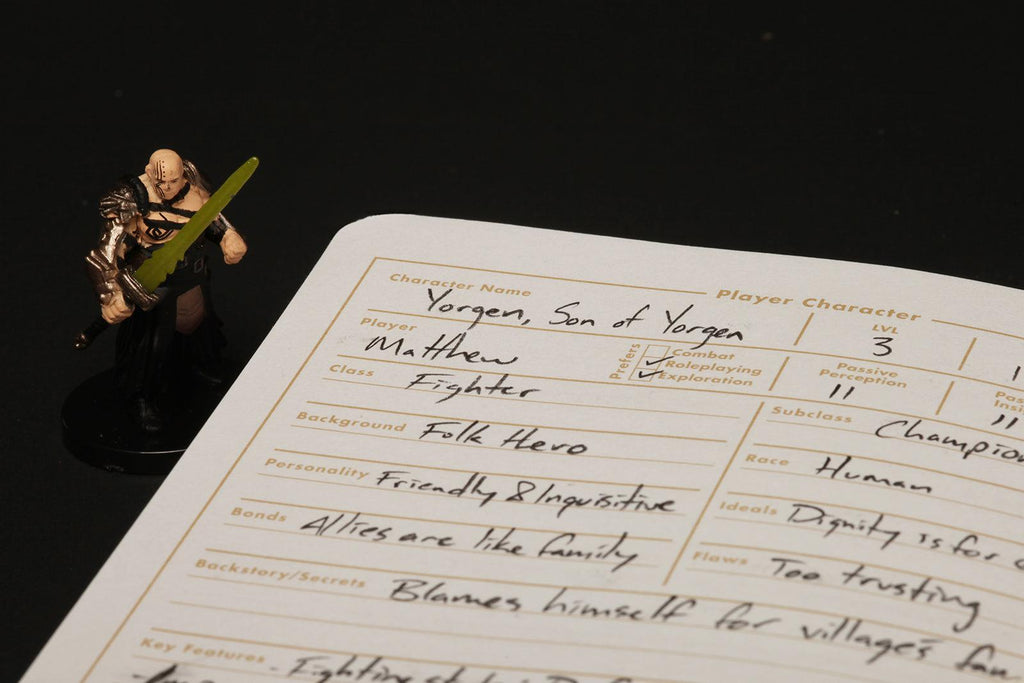 Character Name Player Character
Yorgen, Son of Yorgen LVL 3
Player Matthew Prefers Combat Roleplaying Exploration Passive Perception 11 11
Class Fighter
Background Folk Hero Subclass Champion
Personality Friendly & Inquisitive Race Human
Bonds Allies are like family Ideals Dignity is for
Flaws Too trusting
Backstory/Secrets Blames himself for village's
Key Features - Fighting